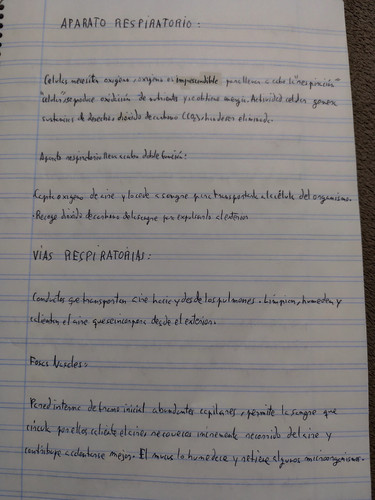 APARATO RESPIRATORIO:
Celulas necesita oxigeno, oxigeno es imprescindible para llevar a cabo la "respiración
celular", se produce oxidación de nutrientes y se obtiene energia. Actividad celular genera
sustancias de desecho, dióxido de carbono (CO2), han de ser eliminado.
Aparato respiratorio lleva a cabo doble función:
Capta oxigeno de aire y lo cede a sangre para transportarla a la célula del organismo.
- Recoge dióxido de carbono de la sangre para expulsarlo al exterior
VÍAS RESPIRATORIAS:
Conductos que transporten aire hacia y desde los pulmones. Limpian, humeden y
calienten el aire que se incorpora desde el exterior.
Fosas Nasales:
Pared interna de tramo inicial abundantes capilares, permite la sangre que
circula por ellos caliente el aire, recovecos incrementa recorrido del aire y
contribuye a calentarse mejor. El mucus lo humedece y retiene algunos microorganismos.